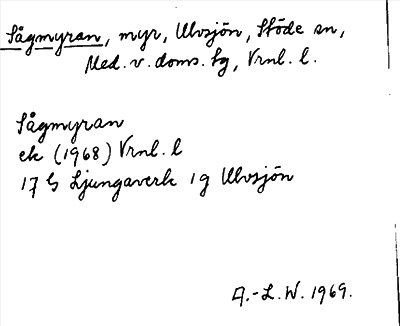 Sågmyran, myr, Ulvsjön, Stöde sn,
Med. v. doms. sg, Vrnl. l.
Sågmyran
ek (1968) Vrnl. l
17 G Ljungaverk 1g Ulvsjön
A.-L.W. 1969.